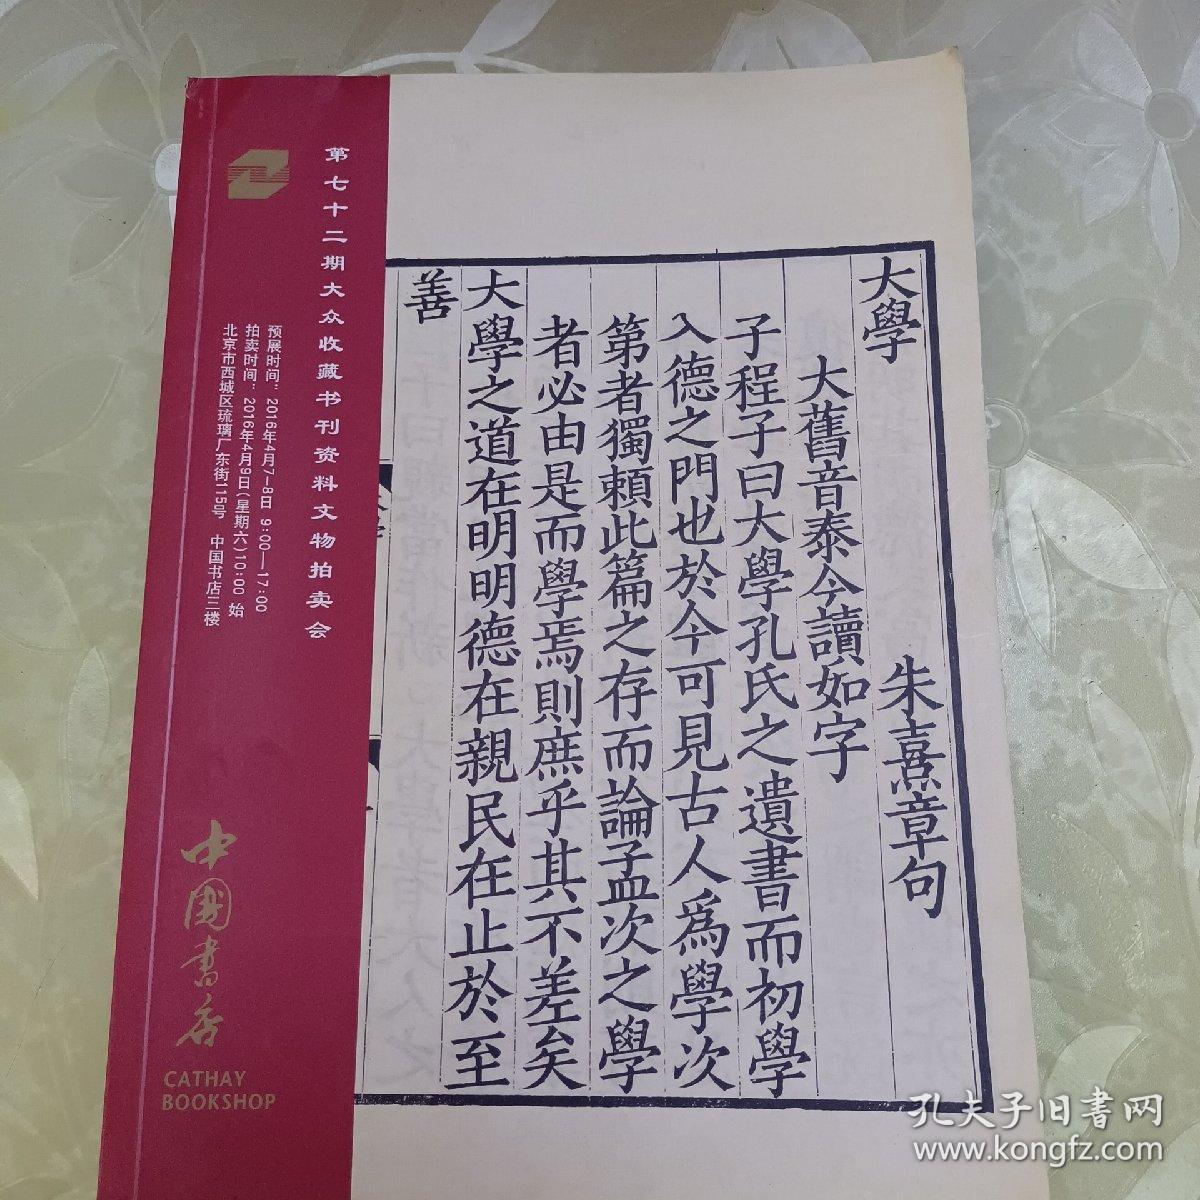 大學
朱熹章句
大舊音泰今讀如字
子程子曰大學孔氏之遺書而初學
入德之門也於今可見古人爲學次
第者獨賴此篇之存而論孟次之學
者必由是而學焉則庶乎其不差矣
大學之道在明明德在親民在止於至
善
第七十二期大众收藏书刊资料文物拍卖会
预展时间：2016年4月7-8日 9:00—17:00
拍卖时间：2016年4月9日(星期六)10:00 始
北京市西城区琉璃厂东街115号 中国书店三楼
中國書店
CATHAY
BOOKSHOP
孔夫子旧书网
www.kongfz.com